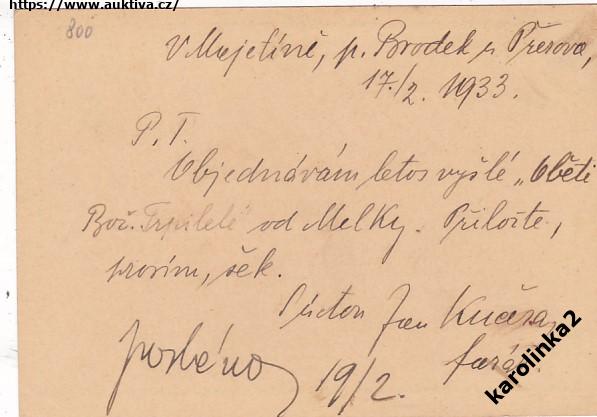 https://www.auktiva.cz/
800
V Majetíně, p. Brodek u Přerova,
17./2. 1933.
P. T.
Objednávám letos vyšlé „Oběti
Bož. Trpitele od Melky. Přiložte,
prosím, šek.
Jan Kučera,
farář
posláno 19/2.
karolinka2